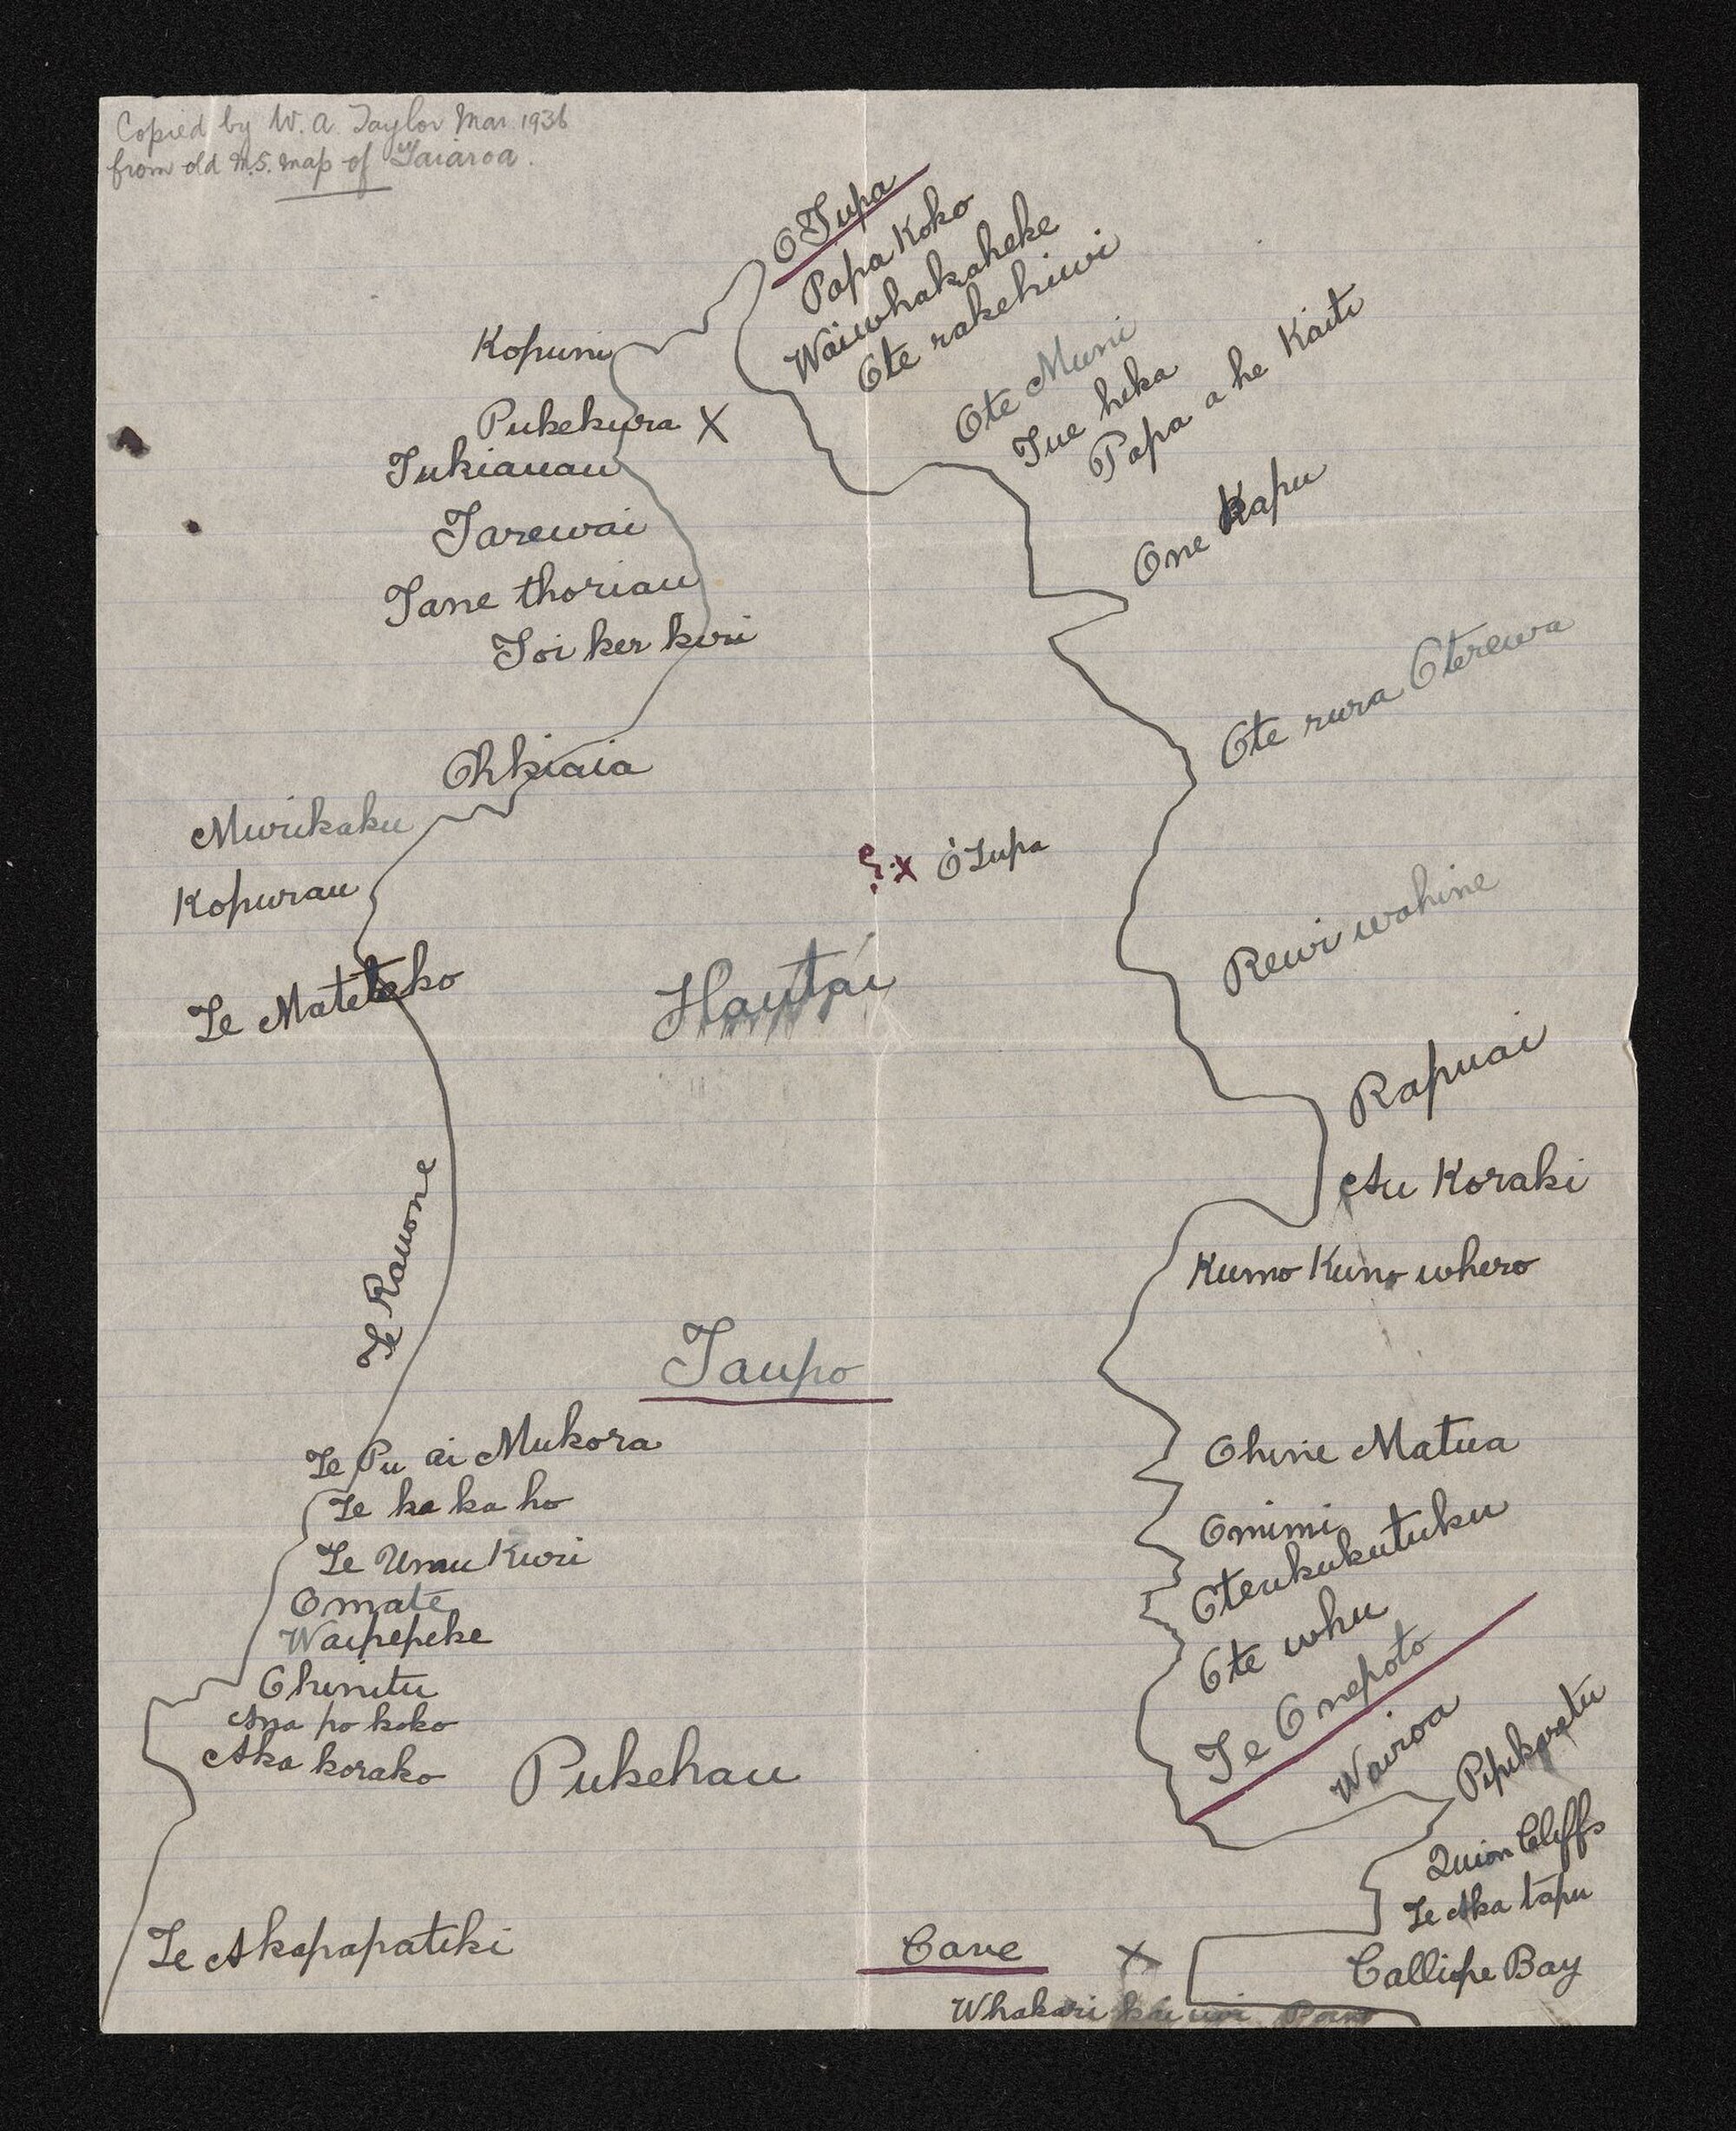 Copied by W. A. Taylor Mar 1936
from old M.S. map of Taiaroa.
OTupa
Papa Koko
Waiwhakaheke
Ote rakehiwi
Kopuni
Ote Muni
Tue heka
Papa a he Kaiti
Pukekura X
Tukiauau
One Kapu
Tarewai
Tane thoriau
Toi ker kuri
Ote rura Oterewa
Ohkiaia
Murikaku
?x OTupa
Kopurau
Rewi wahine
Te Mateteko
Hautai
Rapuai
Au Koraki
Te Rauone
Kumo Kumo whero
Taupo
Te Pu ai Mukora
Ohine Matua
Te ka ka ho
Omimi
Te Umu Kuri
Oteukukutuku
Omate
Waipepeke
Ote whu
Te Onepoto
Ohinitu
Ana po koko
Wairoa
Pipikaretu
Aka korako
Pukehau
Quion Cliffs
Te Aka tapu
Te Akapapatiki
Cave X
Calliope Bay
Whakari